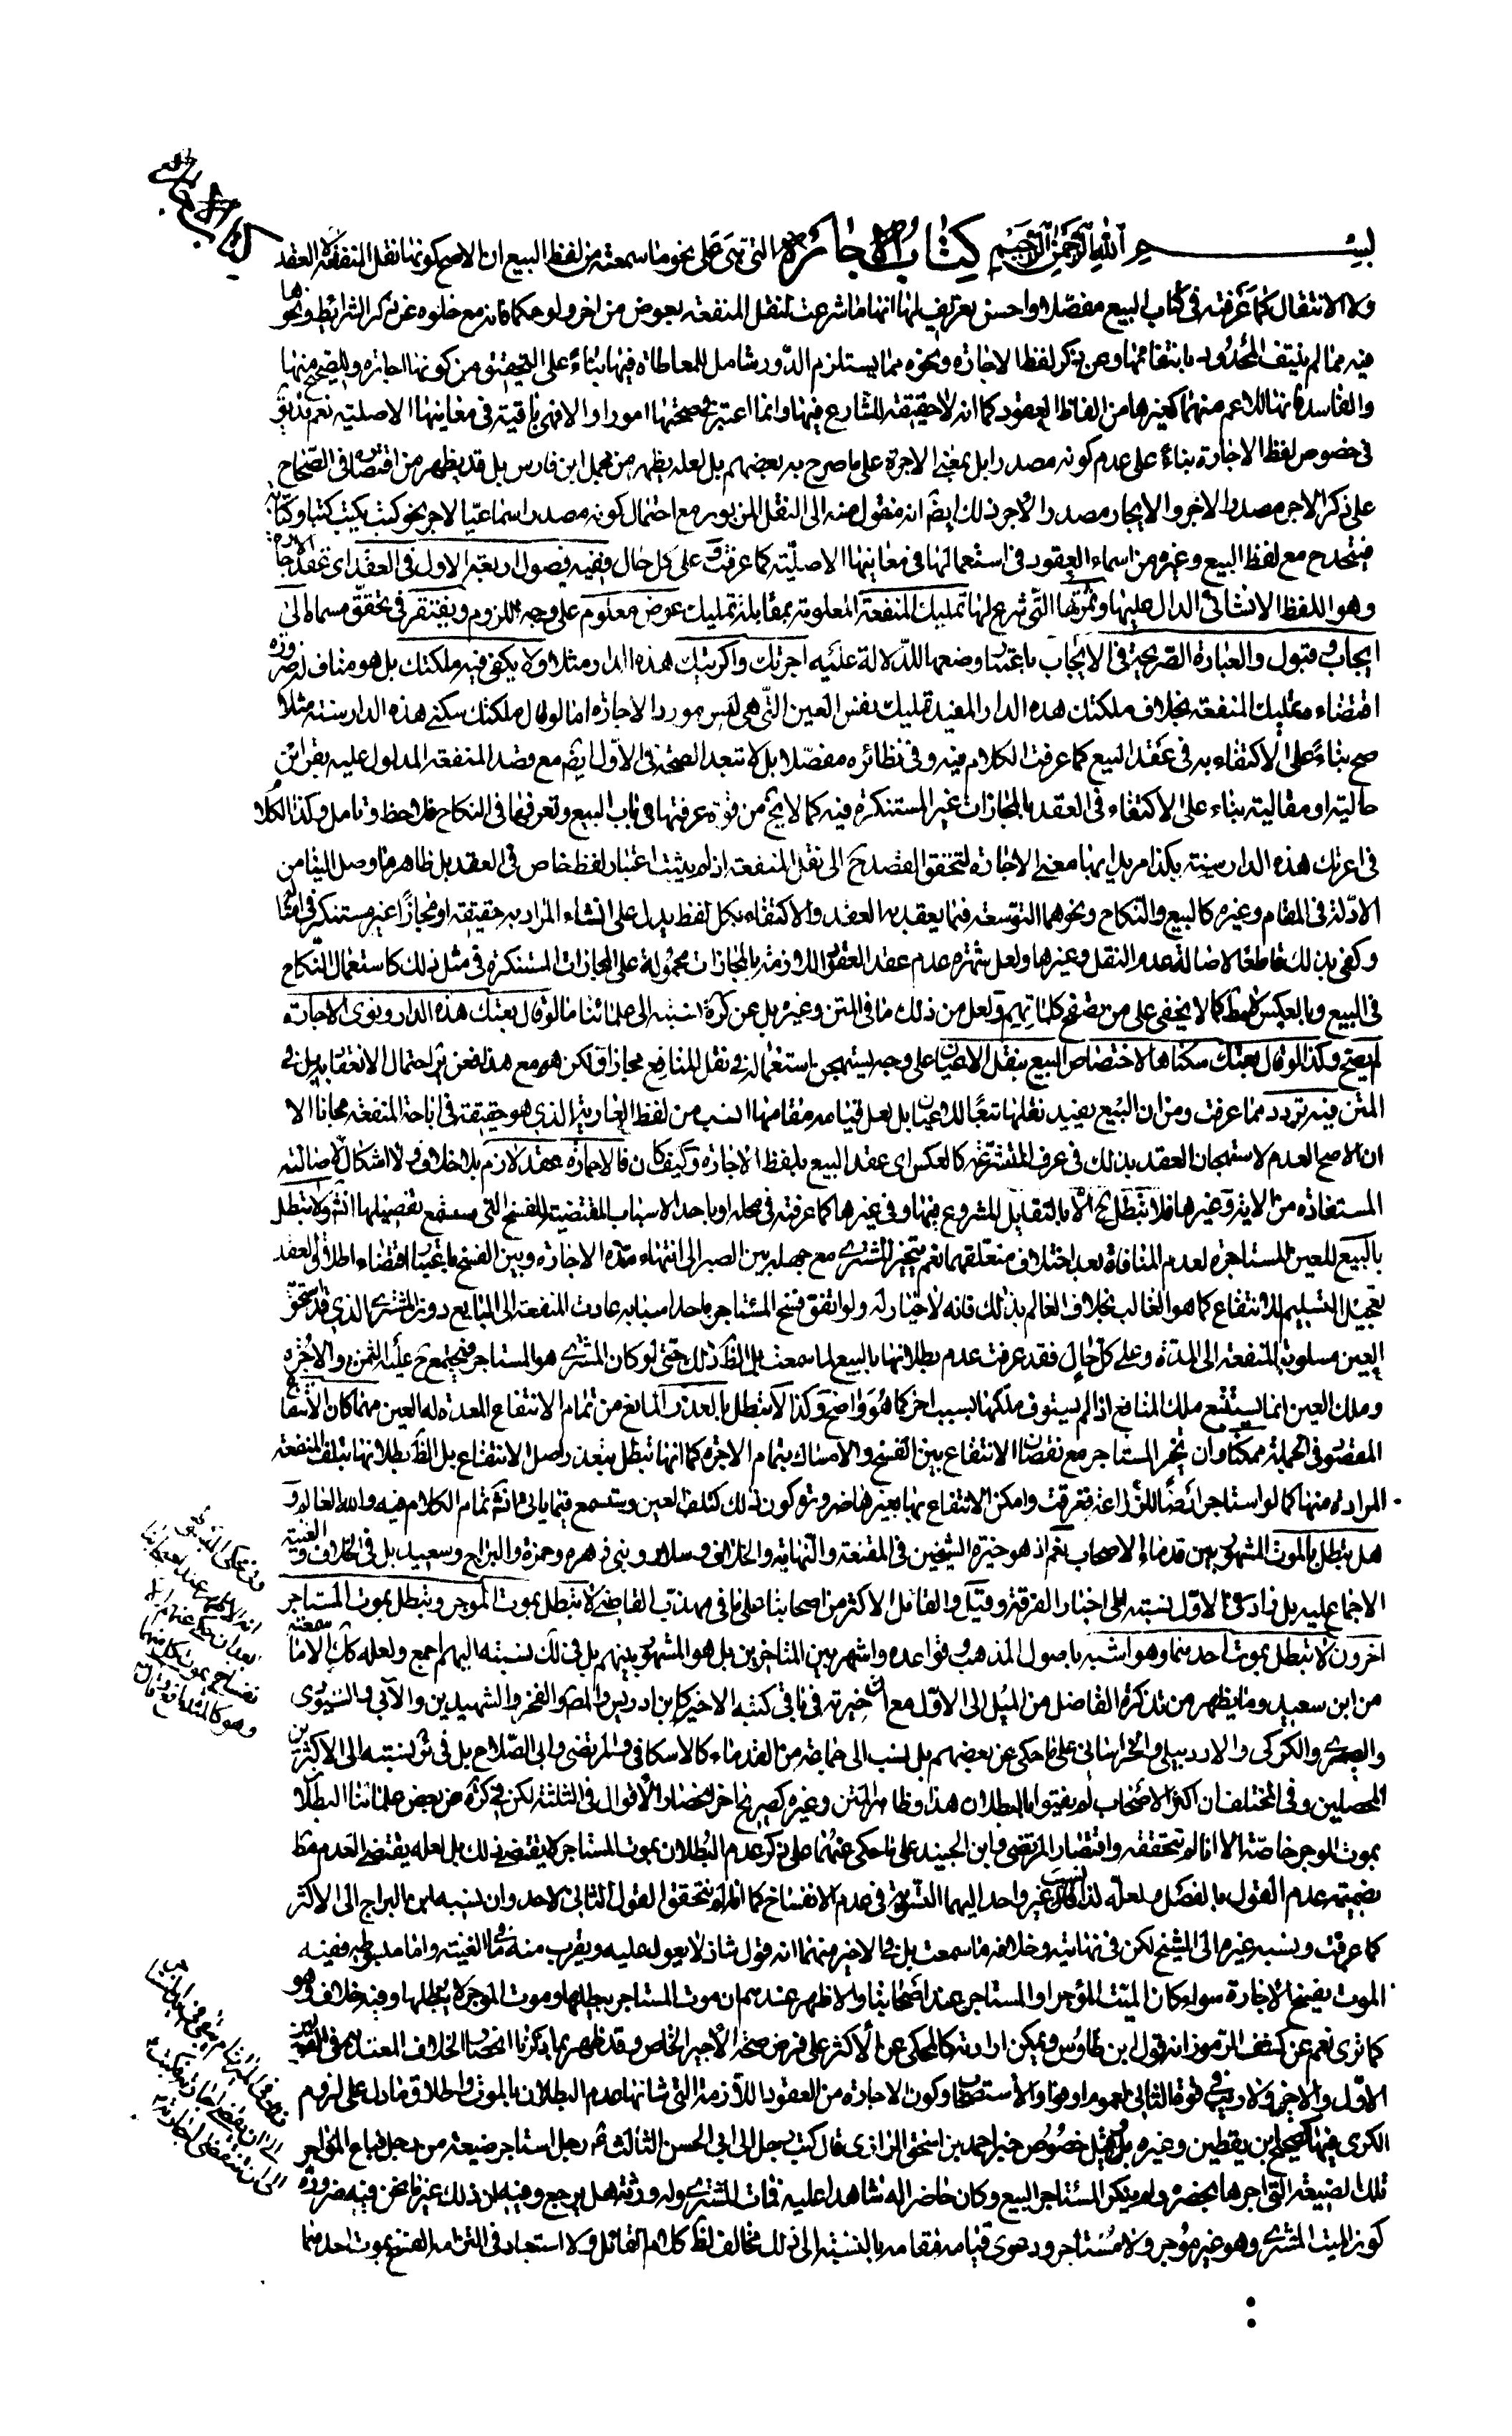 بسم الله الرحمن الرحيم كتاب الاجارة التي هي على نحو ما سمعته من لفظ البيع ان الاصح كونها نقل المنفعة لا العقد
ولا الانتقال كما عرفته في كتاب البيع مفصلا واحسن تعريف لها انها ما شرعت لنقل المنفعة بعوض من اخر ولو حكما فانه مع خلوه عن ذكر الشرائط ونحوها
فيه مما لم ينتف المحدود بانتفائها وعن ذكر لفظ الاجارة ونحوه مما يستلزم الدور شامل للمعاطاة فيها بناء على التحقيق من كونها اجارة وللصحيح منها
والفاسد فانها للاعم منهما كغيرها من الفاظ العقود كما انه لا حقيقة للشارع فيها وانما اعتبر في صحتها امورا والا فهي باقية في معانيها الاصلية نعم قد يق
في خصوص لفظ الاجارة بناء على عدم كونه مصدرا بل بمعنى الاجرة على ما صرح به بعضهم بل لعله يظهر من مجمل ابن فارس بل قد يظهر من اقتصاره في الصحاح
على ذكر الاجر مصدرا لاجر والايجار مصدرا لآجر ذلك ايضا انه منقول منه الى النقل المزبور مع احتمال كونه مصدرا سماعيا لاجر نحو كتب يكتب كتبا وكتابة
فيتحد ح مع لفظ البيع وغيره من اسماء العقود في استعمالها في معانيها الاصلية كما عرفت وعلى كل حال ففيه فصول اربعة الاول في العقد اي عقد الاجارة
وهو اللفظ الانشائي الدال عليها وثمرتها التي شرع لها تمليك المنفعة المعلومة بمقابلة تمليك عوض معلوم على وجه اللزوم ويفتقر في تحقق مسماه الى
ايجاب وقبول والعبارة الصريحة في الايجاب باعتبار وضعها للدلالة عليه اجرتك واكريتك هذه الدار مثلا ولا يكفي فيه ملكتك بل هو مناف له ضرورة
اقتضاء تمليك المنفعة بخلاف ملكتك هذه الدار المفيد تمليك نفس العين التي هي ليس مورد الاجارة اما لو قال ملكتك سكنى هذه الدار سنة مثلا
صح بناء على الاكتفاء به في عقد البيع كما عرفت الكلام فيه وفي نظائره مفصلا بل لا تبعد الصحة في الاول ايضا مع قصد المنفعة المدلول عليه بقرائن
حالية او مقالية بناء على الاكتفاء في العقد بالمجازات غير المستنكرة فيه كما لا يخ من قوة عرفتها في باب البيع وتعرفها في النكاح فلاحظ وتامل وكذا الكلام
في اعرتك هذه الدار سنة بكذا مريدا بها معنى الاجارة لتحقق القصد ح الى نقل المنفعة اذ لم يثبت اعتبار لفظ خاص في العقد بل ظاهر ما وصل الينا من
الادلة في المقام وغيره كالبيع والنكاح ونحوهما التوسعة فيما يعقد به العقد والاكتفاء بكل لفظ يدل على انشاء المراد به حقيقة او مجازا غير مستنكر في امثاله
وكفى بذلك قاطعا لاصالة عدم النقل وغيرها ولعل شهرة عدم عقد العقود اللازمة بالمجازات محمولة على المجازات المستنكرة في مثل ذلك كاستعمال النكاح
في البيع وبالعكس كما لا يخفى على من تصفح كلماتهم ولعل من ذلك ما في المتن وغيره بل عن كره نسبته الى علمائنا ما لو قال بعتك هذه الدار ونوى الاجارة
لم يصح وكذا لو قال بعتك سكناها لاختصاص البيع بنقل الاعيان على وجه يستهجن استعماله في نقل المنافع مجازا ولكن هو مع هذا فعن ير احتمال الانعقاد به بل في
المتن فيه تردد مما عرفت ومن ان البيع يفيد نقلها تبعا للاعيان بل لعل قيامه مقامها انسب من لفظ العارية الذي هو حقيقة في اباحة المنفعة مجانا الا
ان الاصح العدم لاستهجان العقد بذلك في عرف المتشرعة كالعكس اي عقد البيع بلفظ الاجارة وكيف كان فالاجارة عقد لازم بلا خلاف ولا اشكال لاصالته
المستفادة من الاية وغيرها فلا تبطل ح الا بالتقايل المشروع فيها وفي غيرها كما عرفته في محله او باحد الاسباب المقتضية للفسخ التي ستسمع تفصيلها انش ولا تبطل
بالبيع للعين المستاجرة لعدم المنافاة بعد اختلاف متعلقهما نعم يتخير المشتري مع جهله بين الصبر الى انتهاء مدة الاجارة وبين الفسخ باعتبار اقتضاء اطلاق العقد
تعجيل التسليم للانتفاع كما هو الغالب بخلاف العالم بذلك فانه لا خيار له ولو اتفق فسخ المستاجر باحد اسبابه عادت المنفعة الى البايع دون المشتري الذي قد استحق
العين مسلوبة المنفعة الى المدة وعلى كل حال فقد عرفت عدم بطلانها بالبيع لما سمعت بل الظ ذلك حتى لو كان المشتري هو المستاجر فيجتمع ح عليه الثمن والاجرة
وملك العين انما يستتبع ملك المنافع اذا لم يستوف ملكها بسبب اخر كما هو واضح وكذا لا تبطل بالعذر المانع من تمام الانتفاع المعدة له العين مهما كان الانتفاع
المقصود في الجملة ممكنا وان تخير المستاجر مع نقصان الانتفاع بين الفسخ والامساك بتمام الاجرة كما انها تبطل بتعذر اصل الانتفاع بل الظ بطلانها بتلف المنفعة
المرادة منها كما لو استاجر ارضا للزراعة فغرقت وامكن الانتفاع بها بغيرها ضرورة كون ذلك كتلف العين وستسمع فيما ياتي انش تمام الكلام فيه والله العالم و
هل تبطل بالموت المشهور بين قدماء الاصحاب نعم اذ هو خيرة الشيخين في المقنعة والنهاية والخلاف وسلار وبني زهره وحمزة والبراج وسعيد بل في الخلاف والغنية
الاجماع عليه بل زاد في الاول نسبته الى اخبار الفرقة وقيل والقائل الاكثر من اصحابنا على ما في مهذب القاضي لا تبطل بموت الموجر وتبطل بموت المستاجر
اخرون لا تبطل بموت احدهما وهو اشبه باصول المذهب وقواعده واشهر بين المتاخرين بل هو المشهور بينهم بل في لك نسبته اليهم اجمع ولعله كك الا ما
من ابن سعيد وما يظهر من تذكرة الفاضل من الميل الى الاول مع ان خيرته في باقي كتبه الاخير كابن ادريس والمص والفخر والشهيدين والآبي والسيوري
والصيمري والكركي والاردبيلي والخراساني على ما حكي عن بعضهم بل نسب الى جماعة من القدماء كالاسكافي والمرتضى وابي الصلاح بل في ئر نسبته الى الاكثرين
المحصلين وفي المختلف ان اكثر الاصحاب لم يفتوا بالبطلان هذا وظاهر المتن وغيره كصريح اخر انحصار الاقوال في الثلثة لكن في كره عن بعض علمائنا البطلان
بموت الموجر خاصة الا انا لم نتحققه واقتصار المرتضى وابن الجنيد على ما حكي عنهما على ذكر عدم البطلان بموت المستاجر لا يقتضي ذلك بل لعله يقتضي العدم مط
بضميمة عدم القول بالفصل ولعله لذا نسب غير واحد اليهما التسوية في عدم الانفساخ كما انا لم نتحقق القول الثاني لاحد وان نسبه ابن البراج الى الاكثر
كما عرفت ونسبه غيره الى الشيخ لكن في نهايته وخلافه ما سمعت بل في الاخير منهما انه قول شاذ لا يعول عليه ويقرب منه ما في الغنية واما مبسوطه ففيه
الموت يفسخ الاجارة سواء كان الميت المؤجر او المستاجر عند اصحابنا والاظهر عندهم ان موت المستاجر يبطلها وموت الموجر لا يبطلها وفيه خلاف وهو
كما ترى نعم عن كشف الرموز انه قول ابن طاوس ويمكن ارادته كالمحكي عن الاكثر على فرض صحة الاجير الخاص وقد ظهر بما ذكرنا انحصار الخلاف المعتد به في القولين
الاول والاخير ولا ريب في قوة الثاني لعموم اوفوا والاستصحاب وكون الاجارة من العقود اللازمة التي شانها عدم البطلان بالموت واطلاق ما دل على لزوم
الكرى فيها كصحيح ابن يقطين وغيره بل قيل خصوص خبر احمد بن اسحق الرازي قال كتب رجل الى ابي الحسن الثالث ع رجل استاجر ضيعة من رجل فباع المؤاجر
تلك الضيعة التي اجرها بحضرة ولم ينكر المستاجر البيع وكان حاضرا له شاهدا عليه فمات المشتري وله ورثة هل يرجع وفيه ان ذلك غير ما نحن فيه ضرورة
كون الميت المشتري وهو غير مؤجر ولا مستاجر ودعوى قيامه مقامه بالنسبة الى ذلك مخالف لظ كلام القائل ولا استبعاد في التزامه الفسخ بموت احدهما